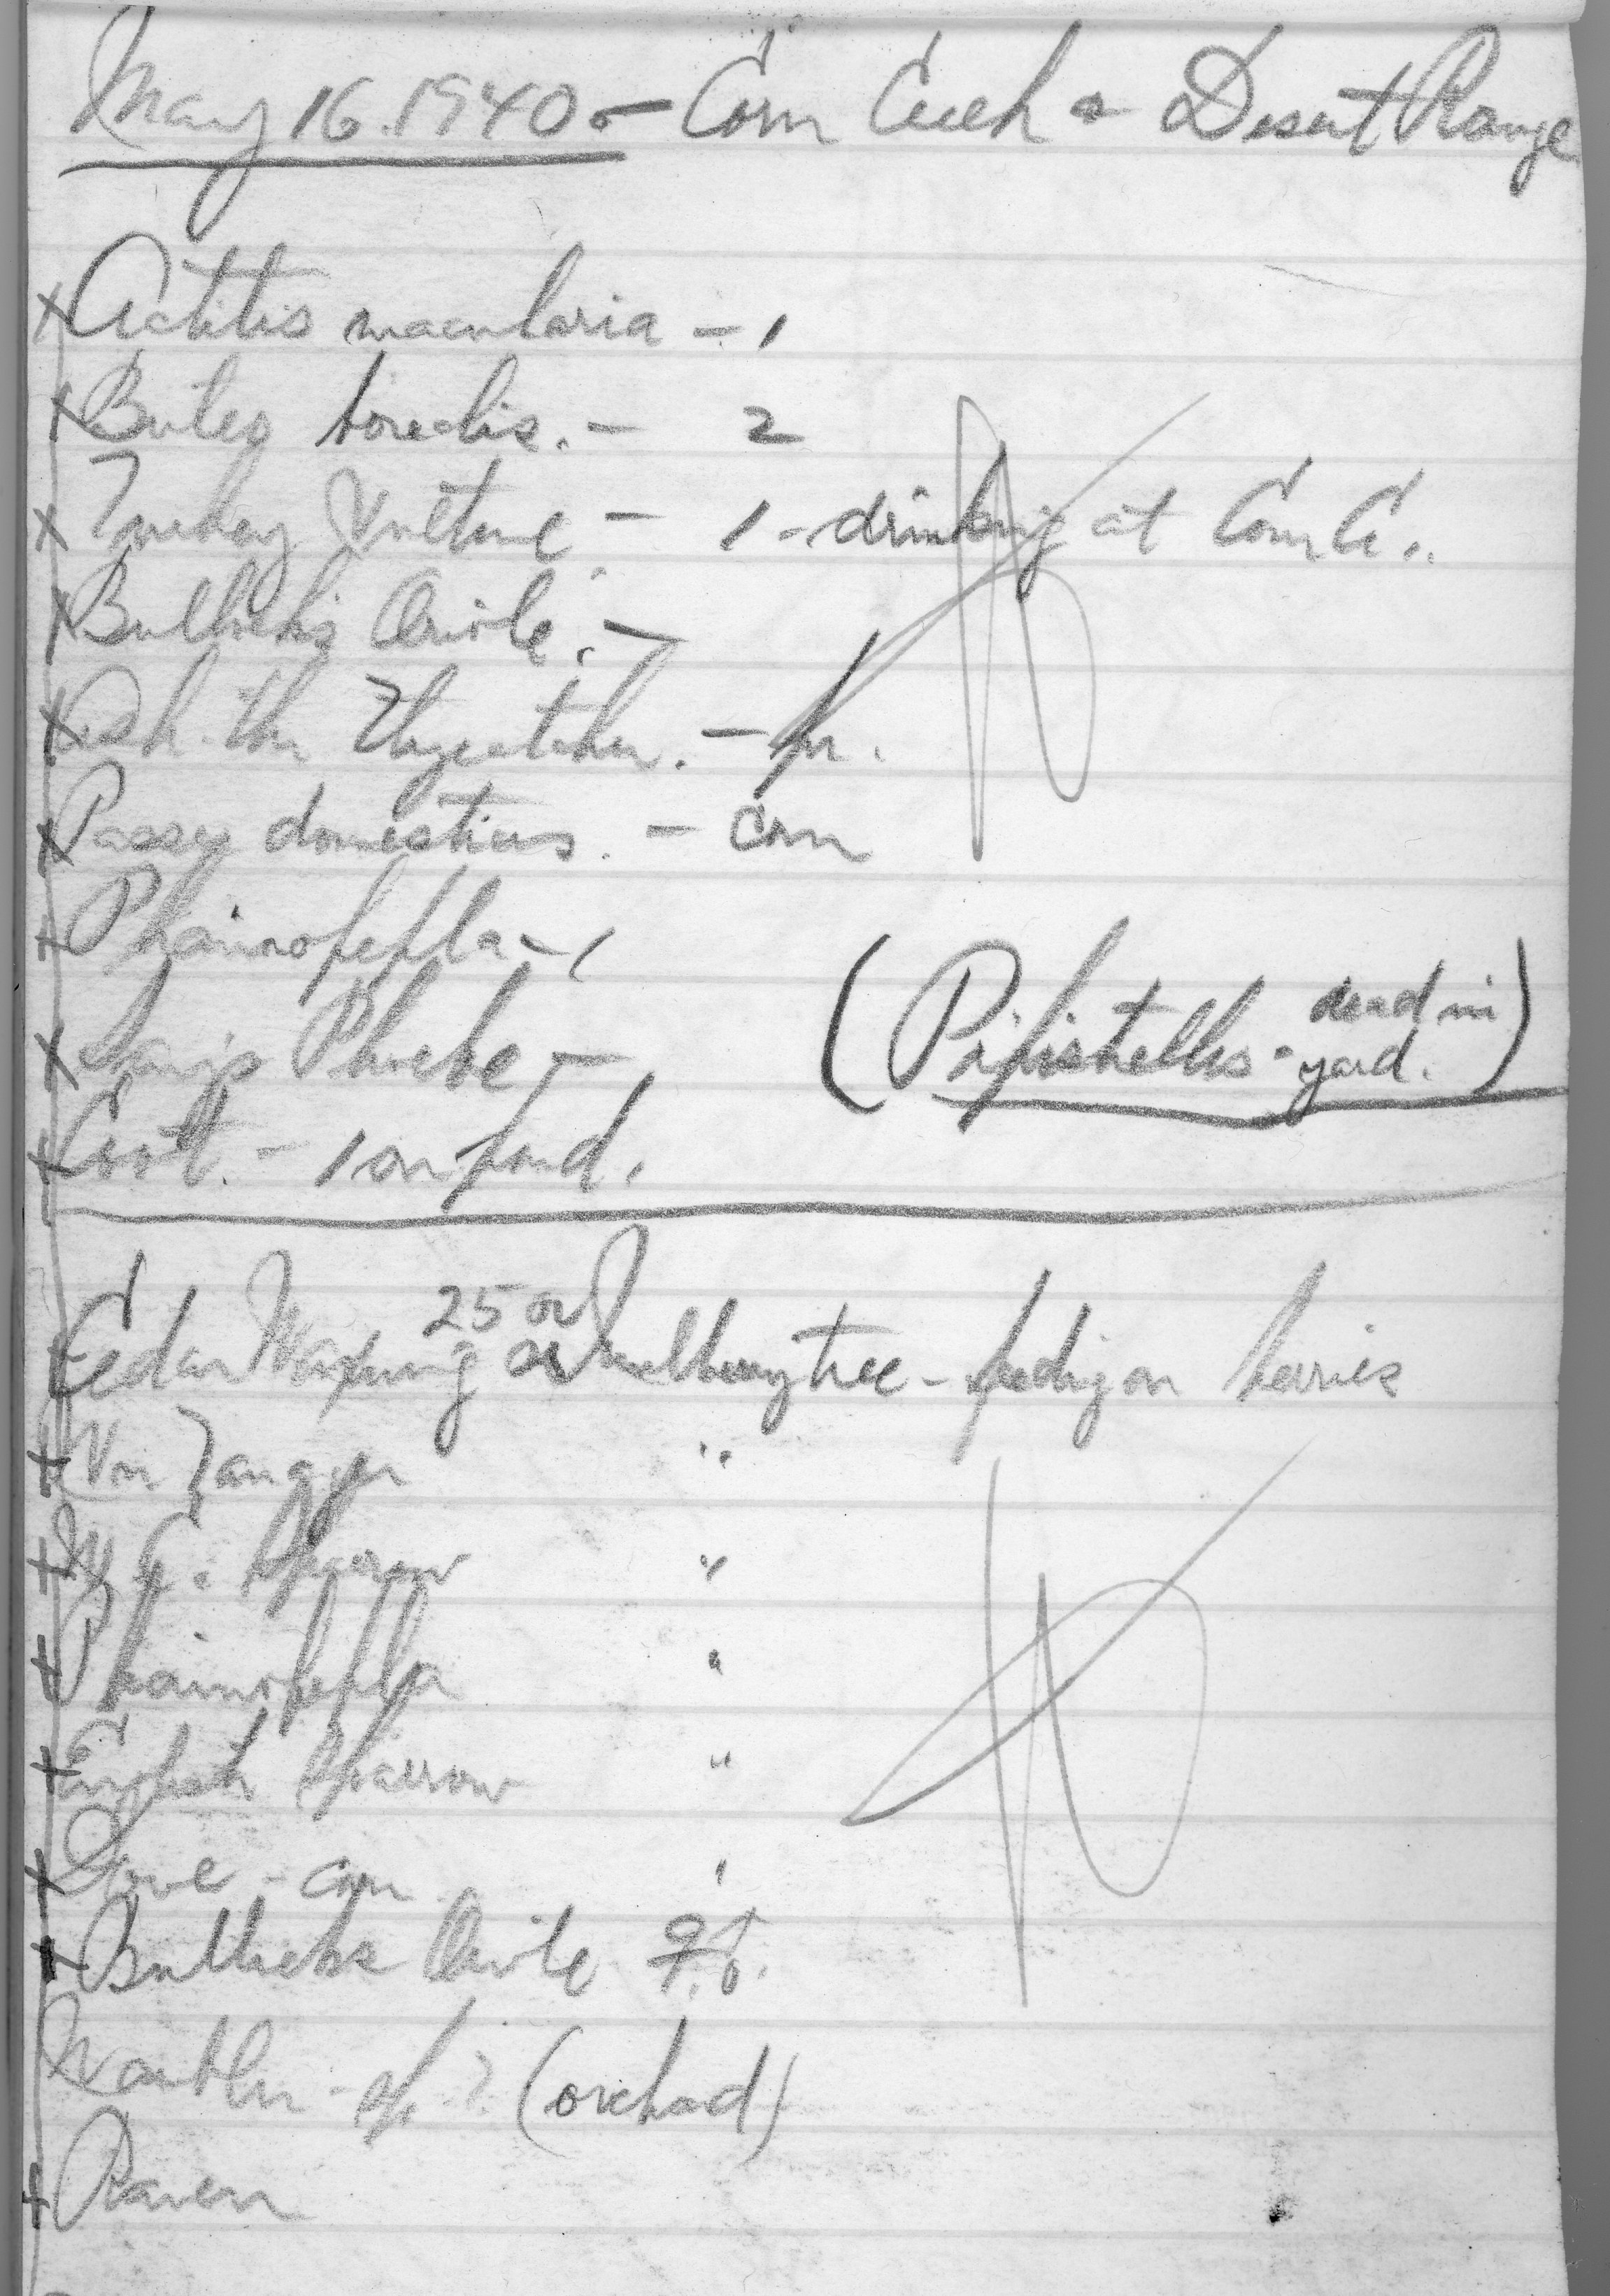 May 16. 1940. - Corn Creek & Desert Range
x Actitis macularia - 1
x Buteo borealis. - 2
x Turkey Vulture - 1 - drinking at Corn Cr..
x Bullock's Oriole. -
x Ash. thr Flycatcher. - pr.
x Passer domesticus. - com
x Phainopepla - 1
x Says Phoebe -
(Pipistrellus - dead in yard.)
x Coot. - 1 on pond.
Cedar Waxwing 25 or mulberry tree - feeding on berries
x Vir Tanager "
x W C. Sparrow "
x Phainopepla "
x English Sparrow "
x Dove - com "
x Bullocks Oriole ♀.♂.
Warbler - sp.? (orchad)
x Raven